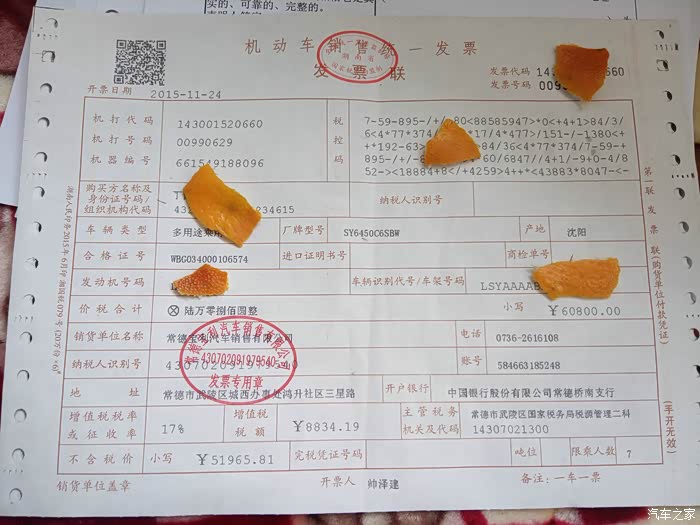 实的、可靠的、完整的。
机动车销售统一发票
发票联
发票代码 14 660
发票号码 009
开票日期 2015-11-24
机打代码 143001520660
机打号码 00990629
机器编号 661549188096
税控码
7-59-895-/+/ 80<88585947>*0<+4+1>84/3/
6<4*77*374/ *17/4*477>/151-/-1380<+
+*192-63> >84/36<4*77*374/7-59-+
895-/+/-8 24-60/6847//4+1/-9+0-4/8
52-><18884+8</+4259>4++*<43883*8047-<-
购买方名称及
身份证号码/
组织机构代码
43 234615
纳税人识别号
车辆类型 多用途乘用
厂牌型号 SY6450C6SBW
产地 沈阳
合格证号 WBG034000106574
进口证明书号
商检单号
发动机号码
车辆识别代号/车架号码 LSYAAAA
价税合计 ⊗陆万零捌佰圆整
小写 ¥60800.00
销货单位名称 常德宝利汽车销售有限公司
电话 0736-2616108
纳税人识别号
账号 584663185248
地址 常德市武陵区城西办事处鸿升社区三星路
开户银行 中国银行股份有限公司常德桥南支行
增值税税率
或征收率
17%
增值税
税额
¥8834.19
主管税务
机关及代码
常德市武陵区国家税务局税源管理二科
14307021300
不含税价 小写 ¥51965.81
完税凭证号码
吨位
限乘人数 7
销货单位盖章
开票人 帅泽建
备注:一车一票
第二联 发票联(购货单位付款凭证)
(手开无效)
发票专用章
汽车之家